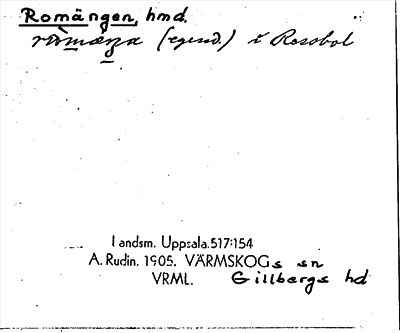 Romängen, hmd.
(egend.) i Rossbol
Landsm. Uppsala 517:154
A. Rudin. 1905. VÄRMSKOGs sn
VRML. Gillbergs hd